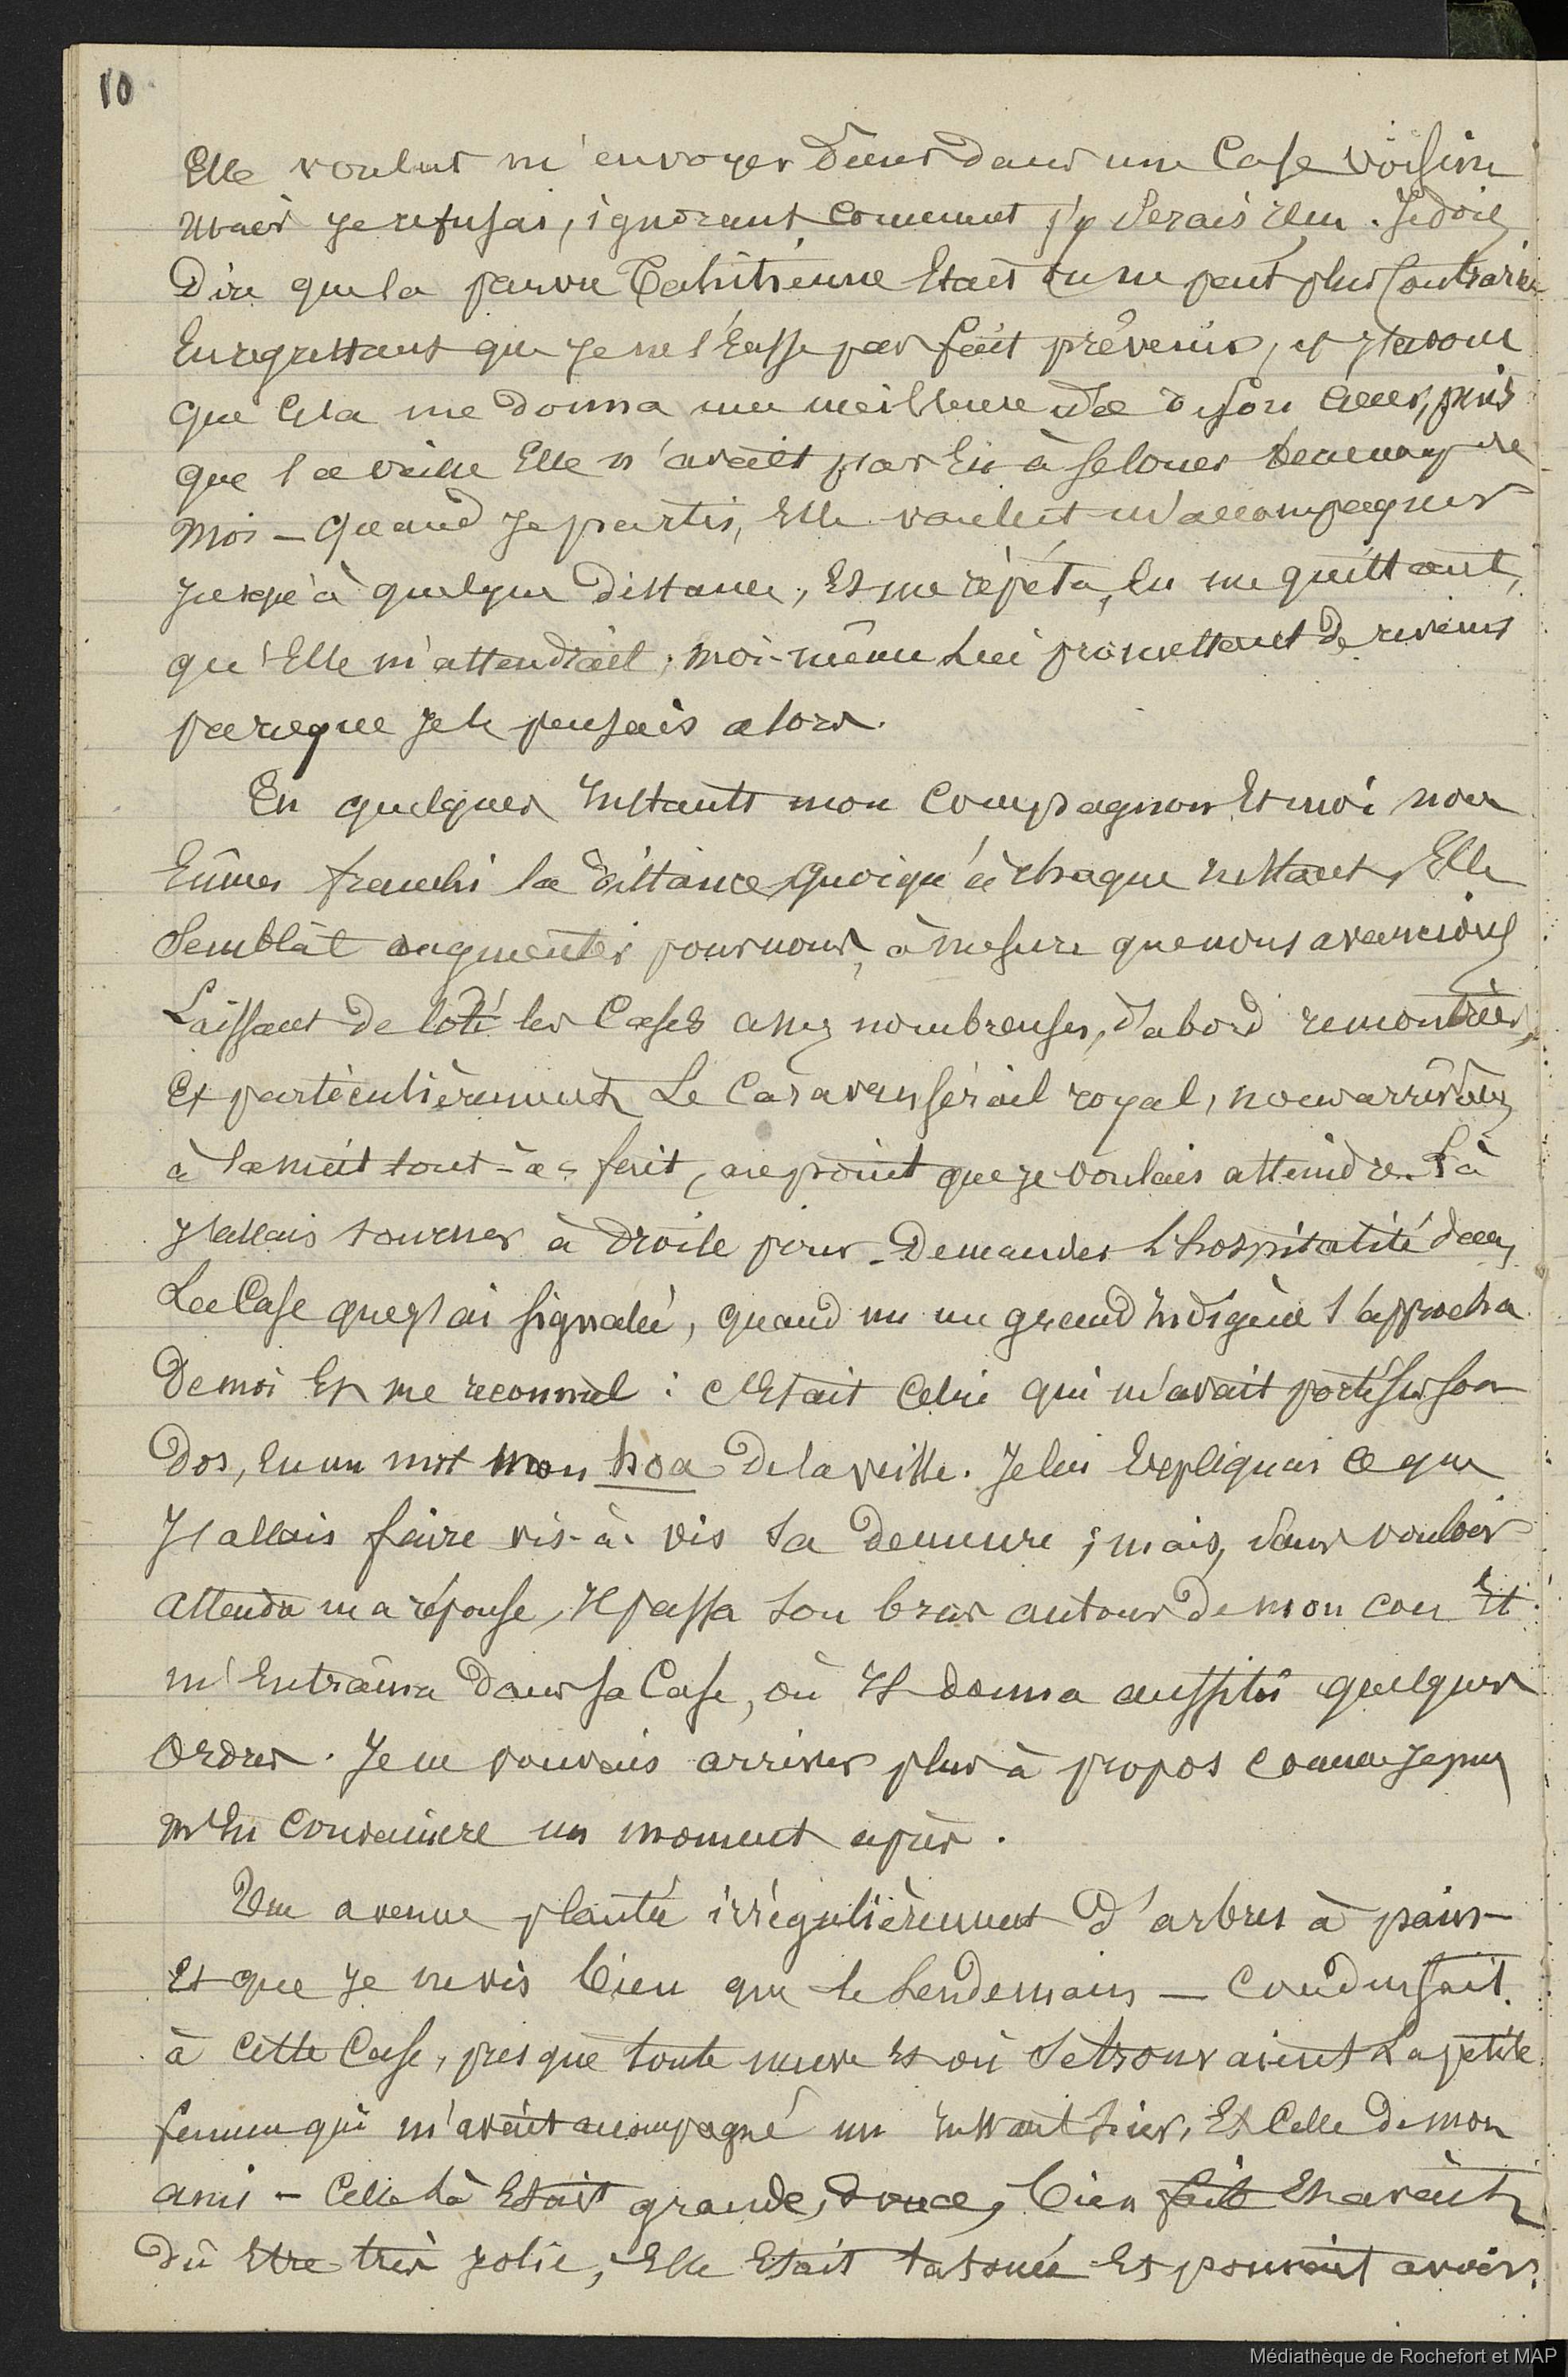 10
Elle voulut m'envoyer dîner dans une Case voisine
mais je refusai, ignorant comment j'y serais reçu. Je dois
Dire que la pauvre Tahitienne Etait on ne peut plus Contrariée
En regrettant que je ne l'Eusse pas fait prévenir, et j'avoue
que Cela me donna une meilleure idée de son Coeur, puis
que la veille Elle n'avait pas Eu à se louer beaucoup de
Moi – Quand je partis, Elle voulut m'accompagner
jusqu'à quelque Distance, Et me répéta, En me quittant,
qu'Elle m'attendrait, moi-même Lui promettant de revenir
parceque je le pensais alors.
En quelques Instants mon Compagnon Et moi nous
Eûmes franchi la distance, quoiqu'à chaque instant, Elle
Semblât augmenter pour nous, à mesure que nous avancions
Laissant de Coté les Cases assez nombreuses, d'abord rencontrées,
Et particulièrement Le Caravansérail royal, nous arrivâmes
à la nuit tout-à-fait, au point que je voulais atteindre. Là
j'allais tourner à Droite pour Demander L'hospitalité dans
La Case que j'ai signalée, quand un un grand Indigène s'approcha
De moi Et me reconnut : C'Etait Celui qui m'avait porté sur son
Dos, En un mot mon hoa De la veille. Je lui Expliquai Ce que
J'allais faire vis-à-vis sa Demeure ; mais, sans vouloir
Attendre ma réponse, Il passa son bras autour de mon cou Et
m'Entraîna Dans sa Case, où Il donna aussitôt quelques
Ordres. Je ne pouvais arriver plus à propos comme je pus
m'En Convaincre un moment après.
Une avenue plantée irrégulièrement D'arbres à pain –
Et que je ne vis bien que le Lendemain – Conduisait
à Cette Case, presque toute neuve Et où Se trouvaient La petite
femme qui m'avait accompagné un Instant hier, Et Celle De mon
ami – Celle là Etait grande, douce, bien faite Et avait
Dû Etre très jolie, Elle Etait tatouée Et pouvait avoir
Médiathèque de Rochefort et MAP